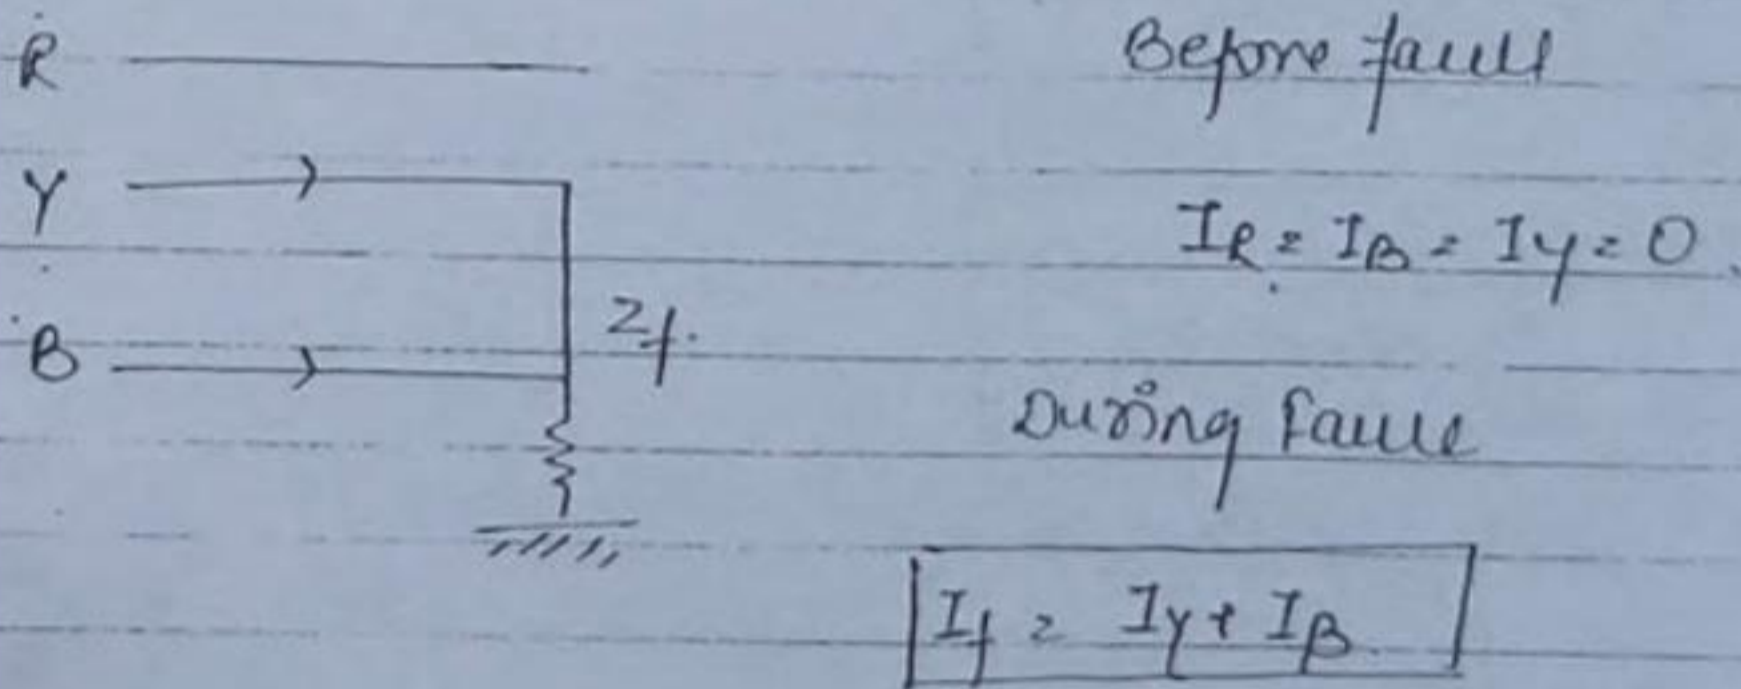 R
Before fault
Y
I_R = I_B = I_Y = 0.
Z_f.
B
During Fault
I_f = I_Y + I_B